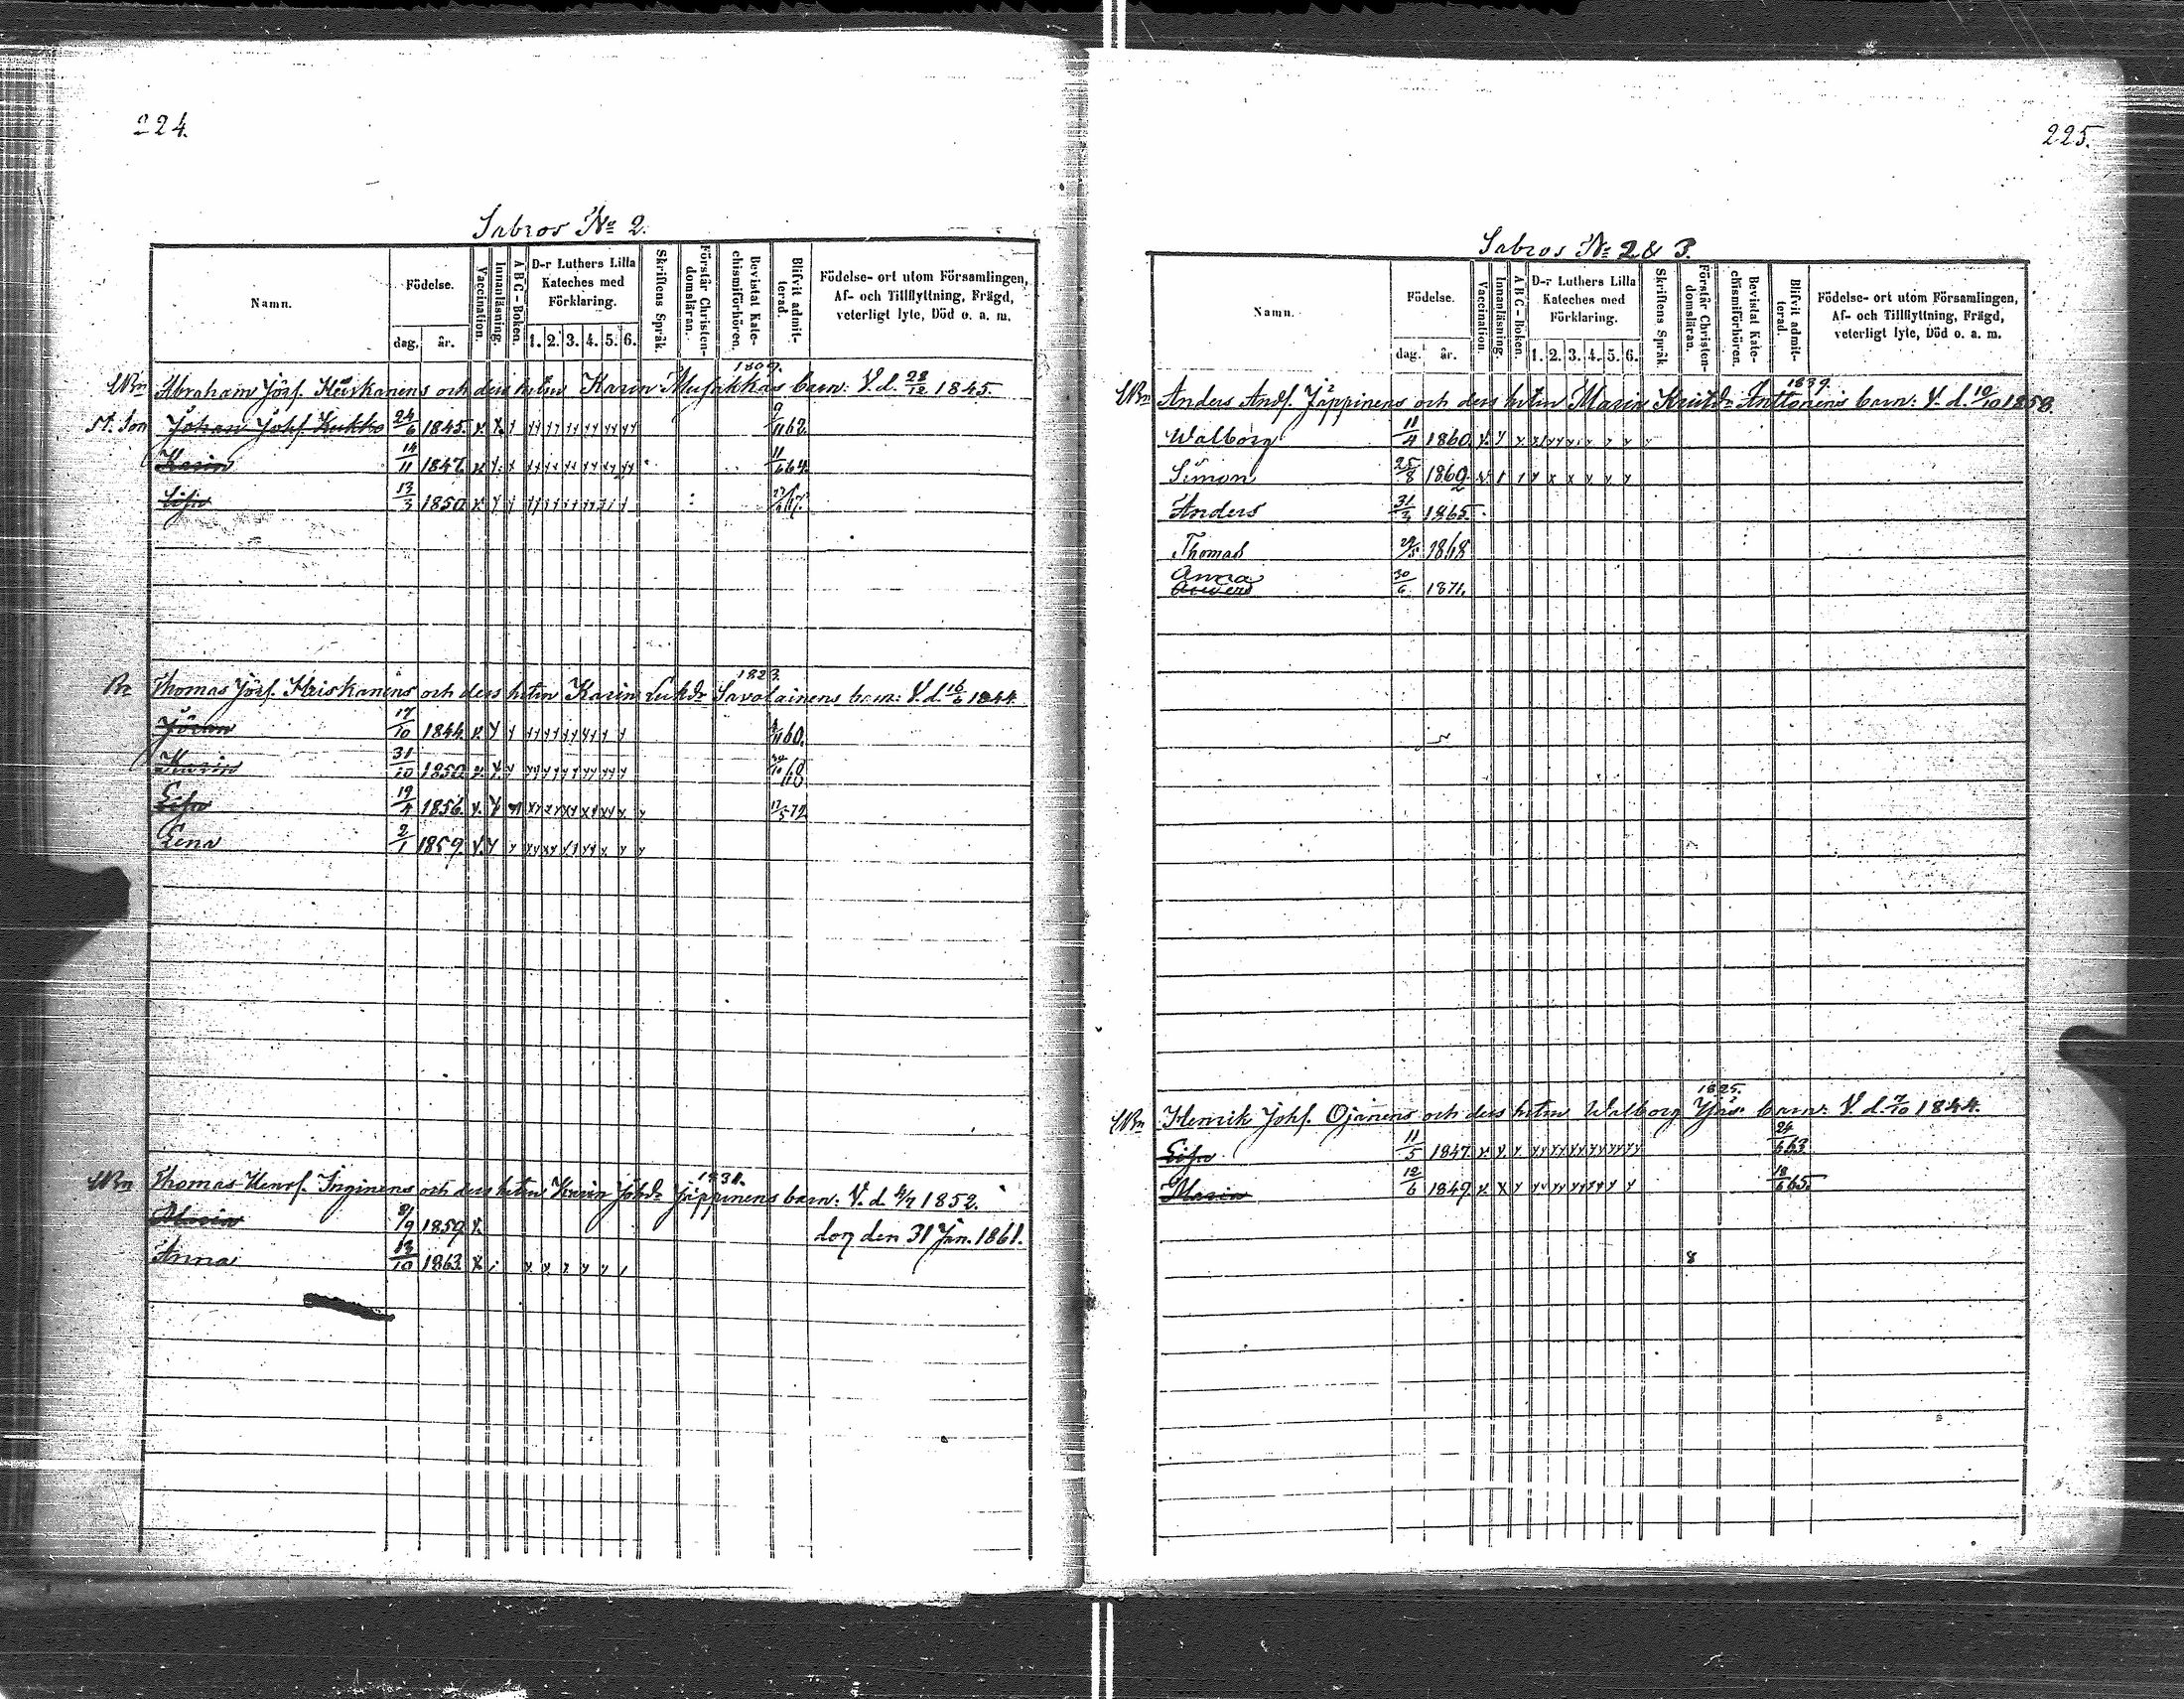 224.
Sabros No 2.
Namn.
Födelse.
dag. år.
Vaccination.
Innanläsning.
A B C - Boken.
D-r Luthers Lilla Kateches med Förklaring.
1. 2. 3. 4. 5. 6.
Skriftens Språk.
Förstår Christendomsläran.
Bevistat Katechismiförhören.
Blifvit admitterad.
Födelse- ort utom Församlingen, Af- och Tillflyttning, Frägd, veterligt lyte, Död o. a. m.
1809.
Abraham Jös. Heiskanens och dess hstru Karin barn: V. d. 28/12 1845.
St. Son Johan Johs. Kukko 24/6 1845. 9/11 62.
Karin 14/11 1847. 11/6 64.
Lisa 13/3 1850
1823.
Thomas Jös. Heiskanens och dess hstru Karin Lukdr Savolainens barn: V. d. 16/6 1844.
Jöran 17/10 1844. 60.
Karin 31/10 1850. 68
Lisa 19/4 1856. 17/5 72
Lena 2/1 1859.
1831.
Thomas Henrs. Inginens och dess hstru Karin Johdr Jäppinens barn: V. d. 1852.
Maria 8/9 1859. dog den 31 Jan. 1861.
Anna 13/10 1863.
225.
Sabros No 2 & 3.
Namn.
Födelse.
dag. år.
Vaccination.
Innanläsning.
A B C - Boken.
D-r Luthers Lilla Kateches med Förklaring.
1. 2. 3. 4. 5. 6.
Skriftens Språk
Förstår Christendomsläran.
Bevistat Katechismiförhören.
Blifvit admitterad.
Födelse- ort utom Församlingen, Af- och Tillflyttning, Frägd, veterligt lyte, Död o. a. m.
1839.
Anders Ands. Jäppinens och dess hstru Maria Kristdr Anttonens barn: V. d. 10/10 1858.
Walborg 11/4 1860.
Simon 25/8 1862.
Anders 31/3 1865.
Thomas 1868
Anna 30/6 1871.
1825.
Henrik Johs. Ojanens och dess hstru Walborg barn: V. d. 7/10 1844.
Lisa 11/5 1847. 24/6 63.
Maria 12/6 1849. 18/6 65.
8